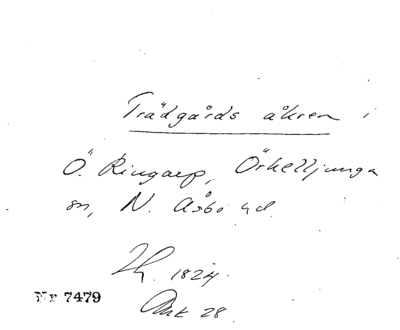 Trädgårds åkren i
Ö. Ringarp, Örkelljunga
sn, N. Åsbo hd.
1824.
Nr 7479
Akt 28.